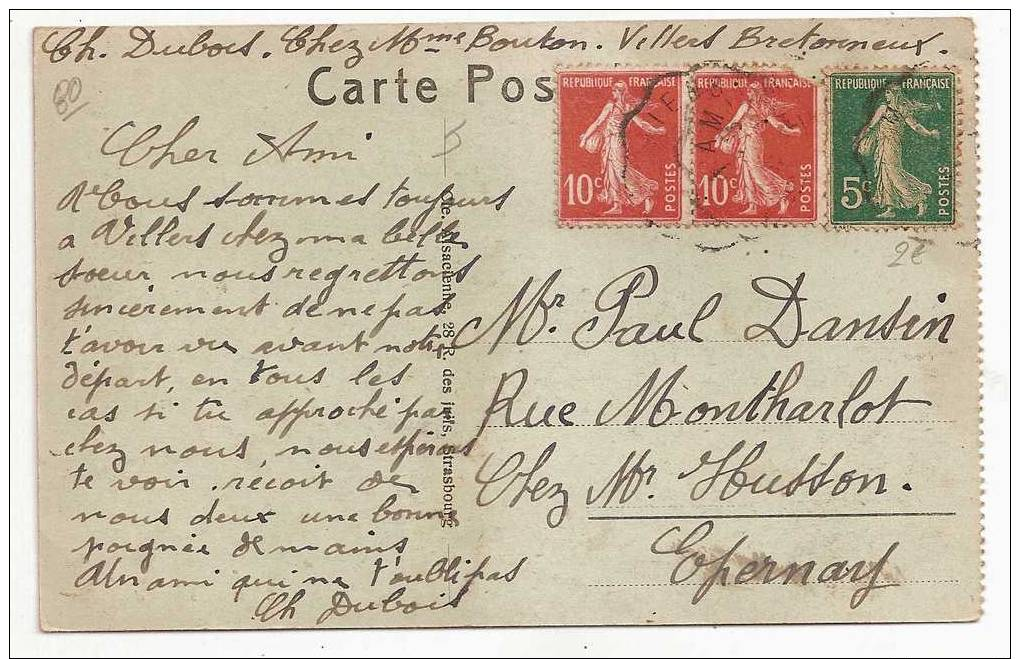 Ch. Dubois. Chez Mme Bouton. Villers Bretonneux.
80
Carte Pos
REPUBLIQUE FRANÇAISE
10c
POSTES
REPUBLIQUE FRANÇAISE
10c
POSTES
REPUBLIQUE FRANÇAISE
5c
POSTES
2€
Cher Ami
Nous sommes toujours
a Villers chez ma belle
soeur nous regrettons
sincèrement de ne pas
t'avoir vu avant notre
départ, en tous les
cas si tu approche par
chez nous, nous espérons
te voir. récoit de
nous deux une bonne
poignée de mains
d'un ami qui ne t'oublie pas
Ch Dubois
Cie. Alsacienne, 28 R. des juifs, Strasbourg
Mr. Paul Dansin
Rue Montharlot
Chez Mr. Husson.
Epernay